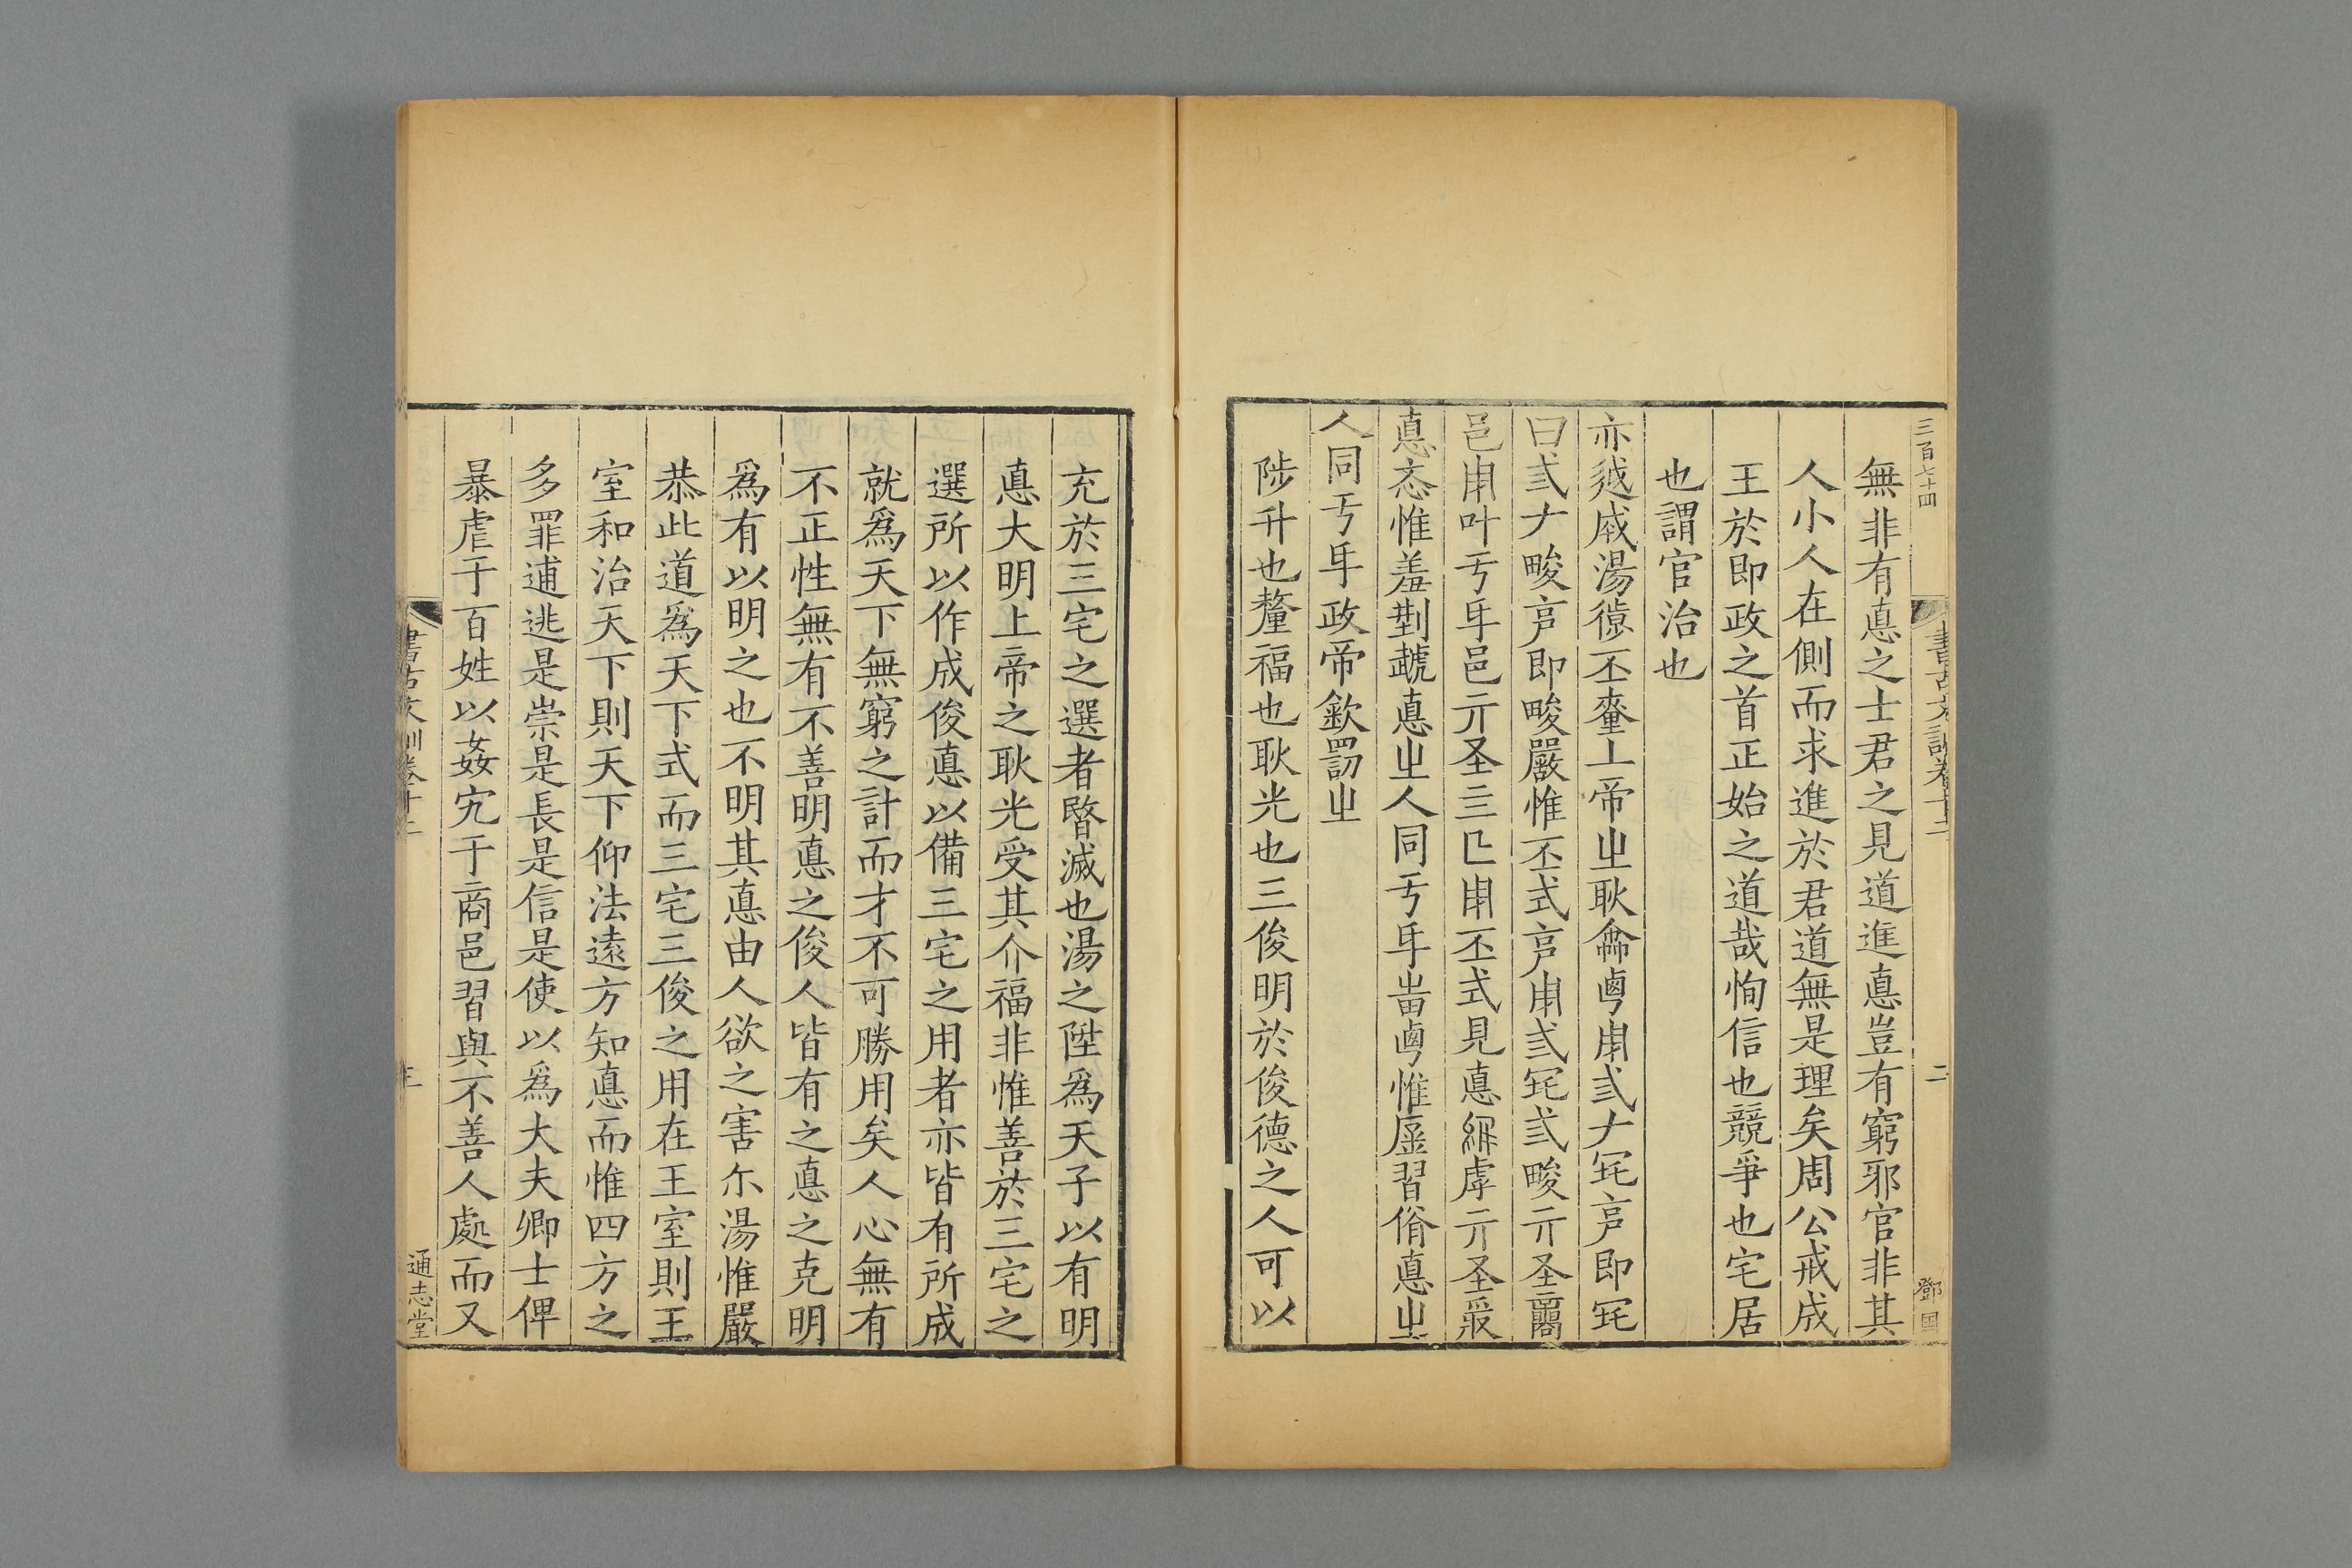 三百七十四
書古文訓卷十二
二
鄧国
無非有悳之士君之見道進悳豈有窮邪官非其
人小人在側而求進於君道無是理矣周公戒成
王於即政之首正始之道哉恂信也競爭也宅居
也謂官治也
亦越成湯徝丕釐丄帝㞢耿 粤用弎ナ宅亯即宅
曰弎ナ畯亯即畯嚴惟丕式亯用弎宅弎畯亓圣
邑用叶亏年邑亓圣三匚用丕式見悳 虖亓圣受
悳忞惟羞㓝虣悳㞢人同亏年 粤惟 習㑛悳㞢
人同亏年政帝欽罰㞢
陟升也釐福也耿光也三俊明於俊德之人可以
充於三宅之選者暋滅也湯之陞爲天子以有明
悳大明上帝之耿光受其介福非惟善於三宅之
選所以作成俊悳以備三宅之用者亦皆有所成
就爲天下無窮之計而才不可勝用矣人心無有
不正性無有不善明悳之俊人皆有之悳之克明
爲有以明之也不明其悳由人欲之害尓湯惟嚴
恭此道爲天下式而三宅三俊之用在王室則王
室和治天下則天下仰法遠方知悳而惟四方之
多罪逋逃是崇是長是信是使以爲大夫卿士俾
暴虐于百姓以姦宄于商邑習與不善人處而又
書古文訓卷十二
三
通志堂